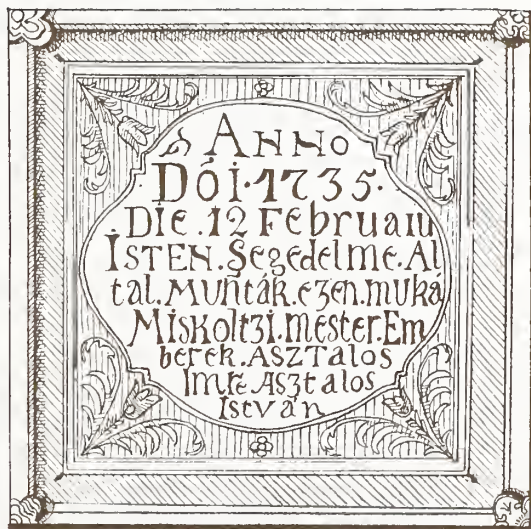 ANNO
Dói·1735·
Die.12 Februaiu
ISTEN.Segedelme.Al
tal.Muńták.ezen.muká
Miskoltzi.mester.Em
berek.ASZTalos
Imre Asztalos
István